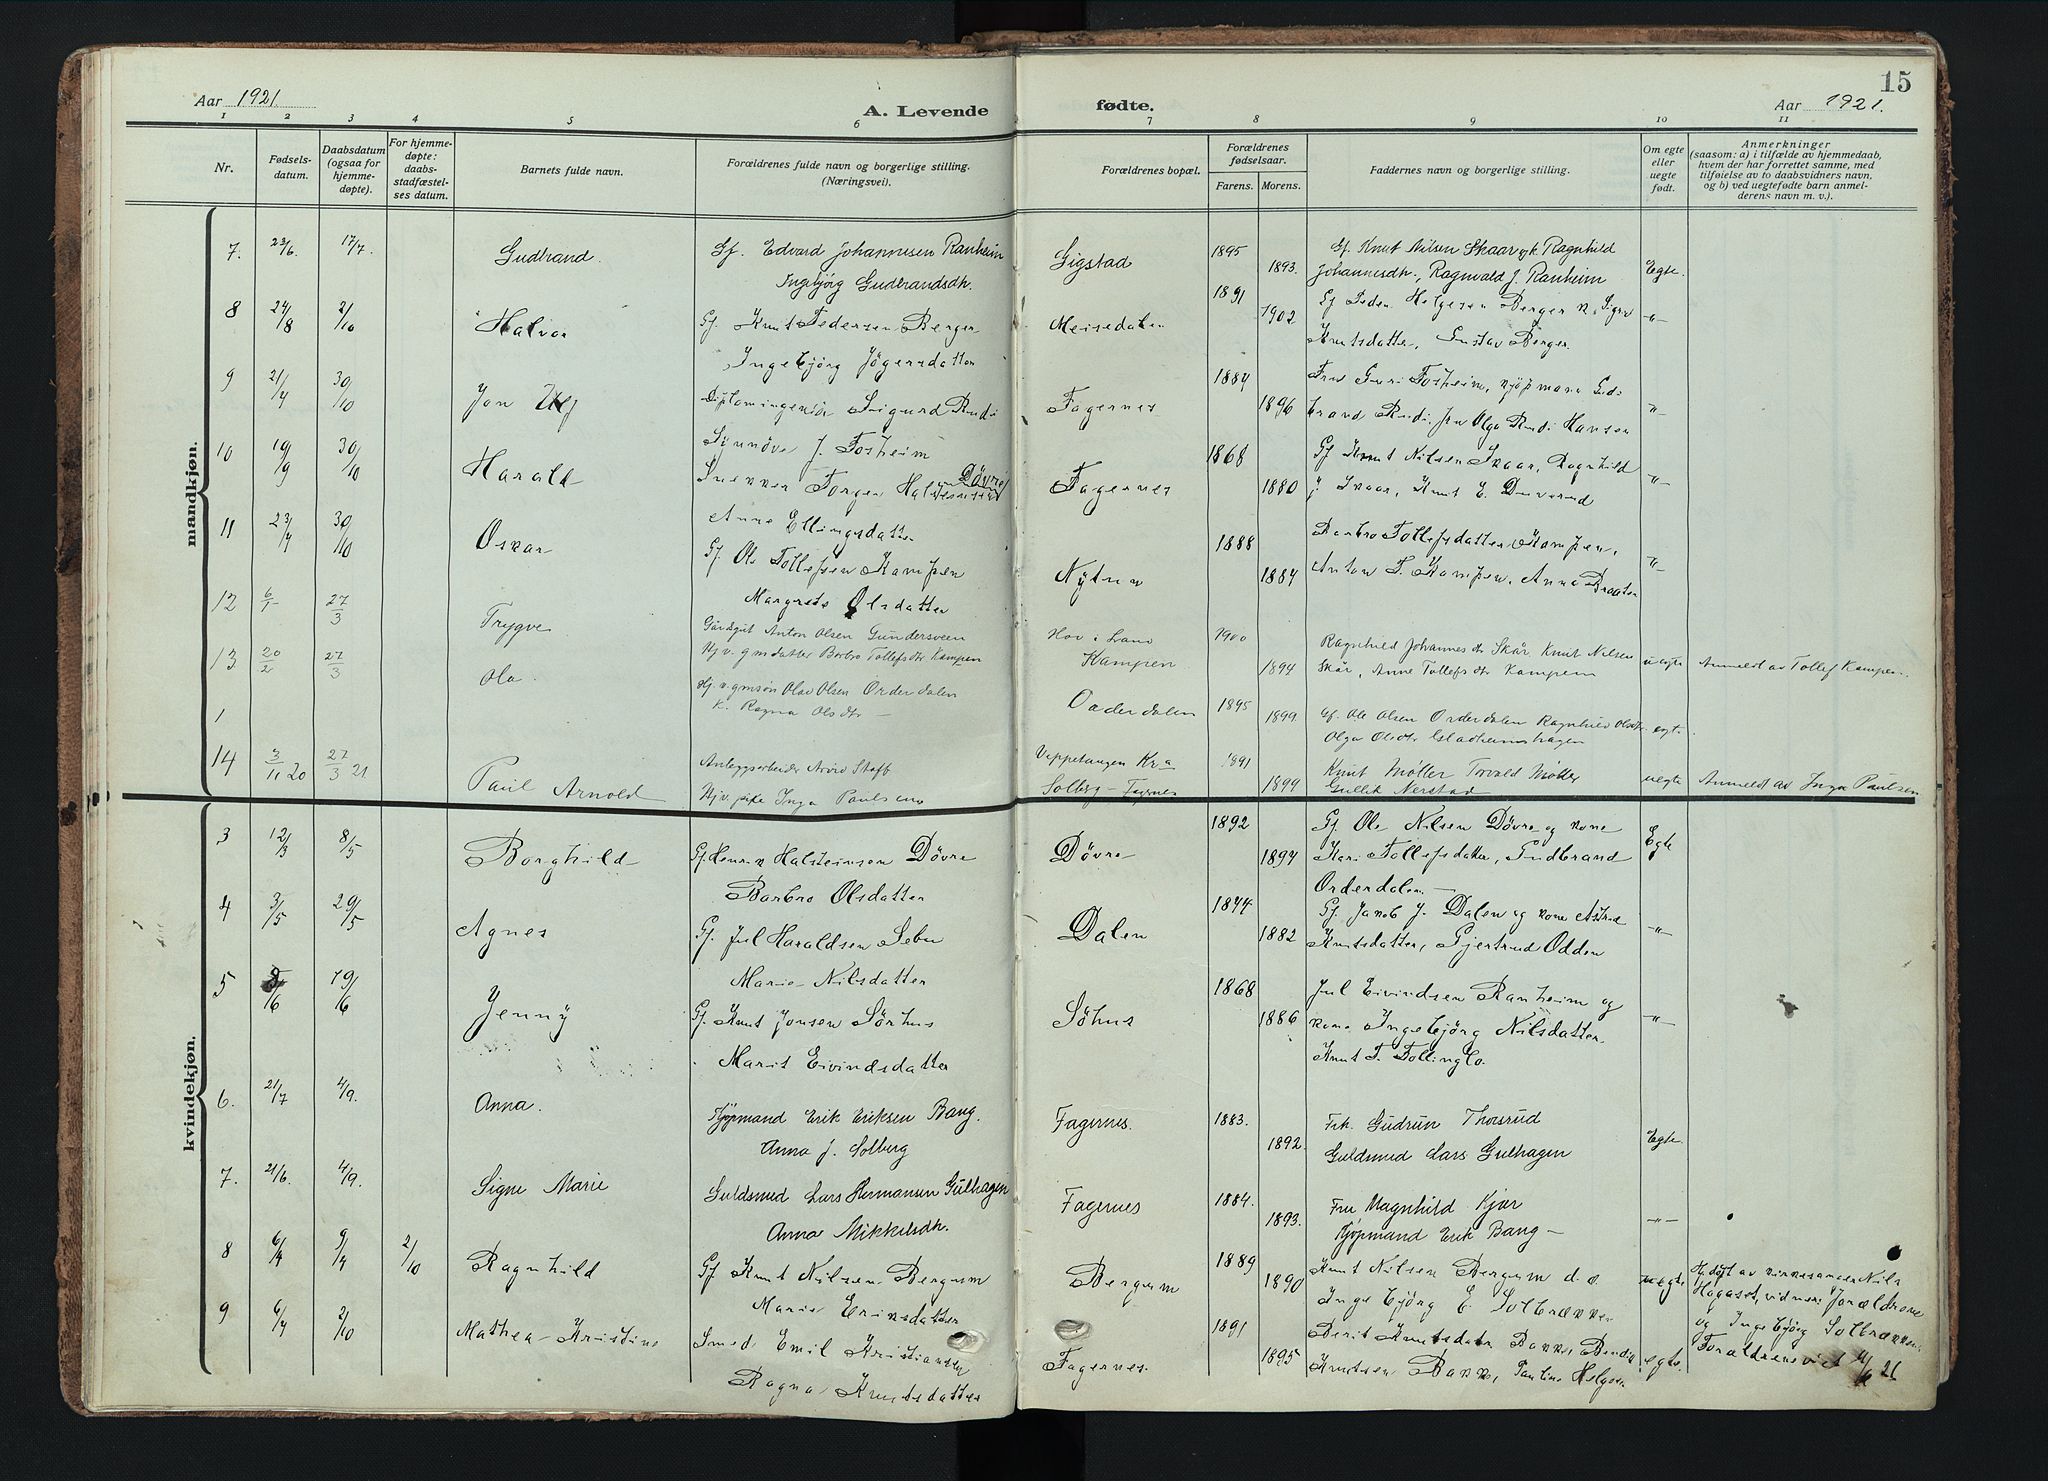 15
Aar 1921.
A. Levende
fødte.
Aar 1921.
1 2 3 4 5 6 7 8 9 10 11
Nr.
Fødsels-
datum.
Daabsdatum
(ogsaa for
hjemme-
døpte).
For hjemme-
døpte:
daabs-
stadfæstel-
ses datum.
Barnets fulde navn.
Forældrenes fulde navn og borgerlige stilling.
(Næringsvei).
Forældrenes bopæl.
Forældrenes
fødselsaar.
Farens. Morens.
Faddernes navn og borgerlige stilling.
Om egte
eller
uegte
født.
Anmerkninger
(saasom: a) i tilfælde av hjemmedaab,
hvem der har forrettet samme, med
tilføielse av to daabsvidners navn,
og b) ved uegtefødte barn anmel-
derens navn m. v.).
mandkjøn.
7. 23/6. 17/7. Gudbrand. Gf. Edvard Johannesen Ranheim Sigstad 1895 Gf. Knut Nilsen Skaar Ragnhild
Ingebjørg Gudbrandsdh. 1893. Johannesdh., Ragnvald J. Ranheim Egte.
8 24/8 2/10 Halvor Gf. Knut Pedersen Berger Meisedalen 1891 Gf Peder Helgesen Berger
Ingebjörg 1902 Knutsdatter, Gustav Berger. -"-
9 21/7 30/10 Jon Ulf Diplomingeniör Sigurd Rudi Fagernes 1884 Fru Guri Fosheim, kjöpmann Gud-
Synnöve J. Fosheim 1896 brand Rudi, fru Olga Rudi Hansen "-
10 19/9 30/10 Harald Snekker Torger Halstensen Dövre Fagernes 1868 Gf Knut Nilsen Skaar, Ragnhild
Anne Ellingsdatter 1880 J. Skaar, Knut E. "-
11 23/7 30/10 Oskar Gf. Ole Tollefsen Kampen 1888 Barbro Tollefsdatter Kampen,
Margrete Olsdatter 1884 Anton T. Kampen, Anna Braaten "-
12 6/1 27/3 Trygve Gårdgut Anton Olsen Gundersveen Hov i Land 1900 Ragnhild Johannes dtr Skår Knut Nilsen
Hj. v. gmdatter Barbro Tollefsdtr Kampen Kampen 1894 Skår, Anne Tollefsdtr Kampen uegte Anmeldt av Tollef Kampen.
13 20/2 27/3 Ola. Hj. v. gmsøn Olav Olsen Orderdalen Orderdalen 1895 Gf. Ole Olsen Orderdalen Ragnhild Olsdtr
K. Ragna Olsdtr - 1899 Olga Olsdtr egte.
1
14 3/11 20 27/3 21 Paul Arnold Anleggsarbeider Arvid Staff Vippetangen Kra 1891 Knut Møller Torvald Møller
Hj v. pike Inga Paulsen Solberg - Fagernes 1899 Gullik Nerstad uegte Anmeldt av Inga Paulsen
kvindekjøn.
3 12/3 8/5 Borghild Gf Henrik Halsteinsen Dövre Dövre 1892 Gf. Ole Nilsen Dövre og kone
Barbro Olsdatter 1894 Kari Tollefsdatter, Gudbrand Egte
Orderdalen -
4 3/5 29/5 Agnes Gf. Jul Haraldsen Sebu Dalen 1877 Gf. Jakob J. Dalen og kone Astrid
Marie Nilsdatter 1882 Knutsdatter, Gjertrud Odden -"-
5 19/6 Jenny Gf. Knut Jonsen Sörhus Söhus 1868 Jul Eivindsen Ranheim og
Marit Eivindsdatter 1886 kone Ingebjörg Nilsdatter -"-
Knut T. Tollinglo.
6. 21/7 4/9. Anna. Kjøpmand Erik Eriksen Bang. Fagernes. 1883. Frk. Gudrun Thorsrud
Anna J. Solberg 1892. Guldsmed Lars Gulhagen Egte.
7. 21/6. 4/9. Signe Marie Guldsmed Lars Hermansen Gulhagen Fagernes 1884. Fru Magnhild Kjær
Anna Mikkelsdh. 1893. Kjøpmand Erik Bang - -"-
8 6/9 9/9 2/10 Ragnhild Gf Knut Nilsen Bergum Bergum 1889 Knut Nilsen Bergum d. e.
Marie Eriksdatter 1890 Ingebjörg E. Solbrække egte
Hj. døpt av kirkesanger Nils
Hagaset, vidner: forældrene
og Ingebjörg Solbrække
9 6/7 2/10 Mathea Kristine Smed Emil Kristiansen Fagernes. 1891 Berit Knutsdatr Bakke Bendik
Ragna Knutsdatter 1895 Knutsen Bakke, Pauline Helgesen egte. Forældrene viet 4/6 21